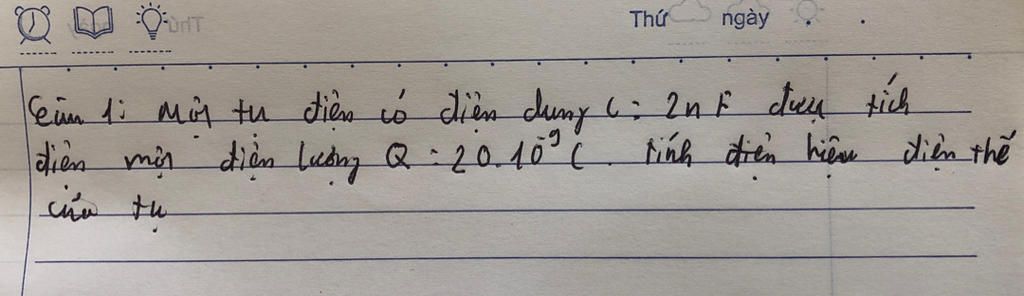 Thứ ngày
Câu 1: Một tụ điện có điện dung C = 2nF được tích
điện một điện lượng Q = 20.10⁻⁹ C. tính điện hiệu điện thế
của tụ